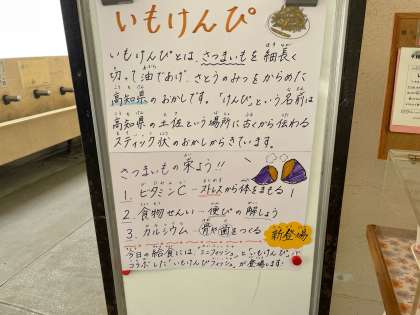 いもけんぴ
いもけんぴとは、さつまいもを細長く
切って油であげ、さとうのみつをからめた
高知県のおかしです。「けんぴ」という名前は
高知県の土佐という場所に古くから伝わる
スティック状のおかしからきています。
さつまいもの栄よう!!
1. ビタミンC - ストレスから体をまもる
2. 食物せんい - 便ぴの解しょう
3. カルシウム - 骨や歯をつくる
新登場
今日の給食には、「ミニフィッシュ」と「いもけんぴ」が
コラボした「いもけんぴフィッシュ」が登場します!